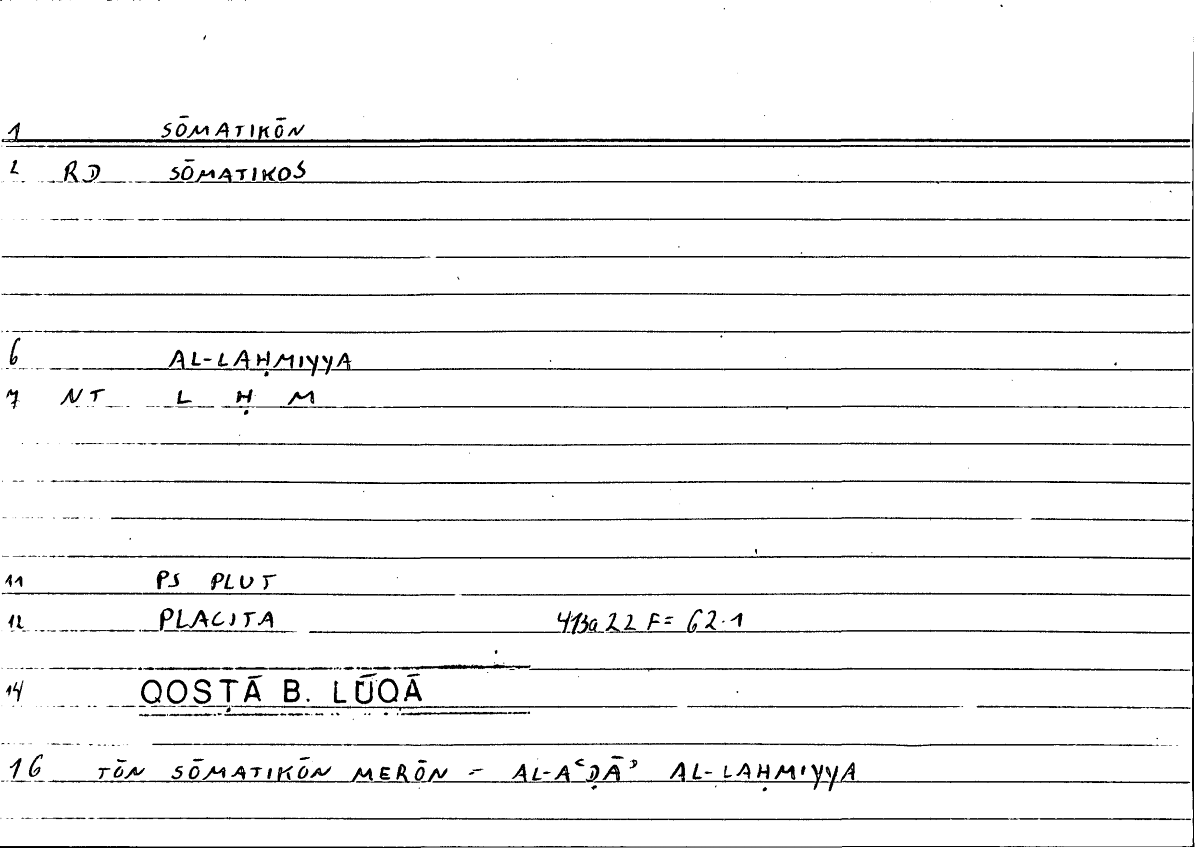 1 SŌMATIKŌN
2 RD SŌMATIKOS
6 AL-LAḤMIYYA
7 NT L Ḥ M
11 PS PLUT
12 PLACITA 413a22 F= 62.1
14 QOSṬĀ B. LŪQĀ
16 TŌN SŌMATIKŌN MERŌN - AL-AʿḌĀʾ AL-LAḤMIYYA